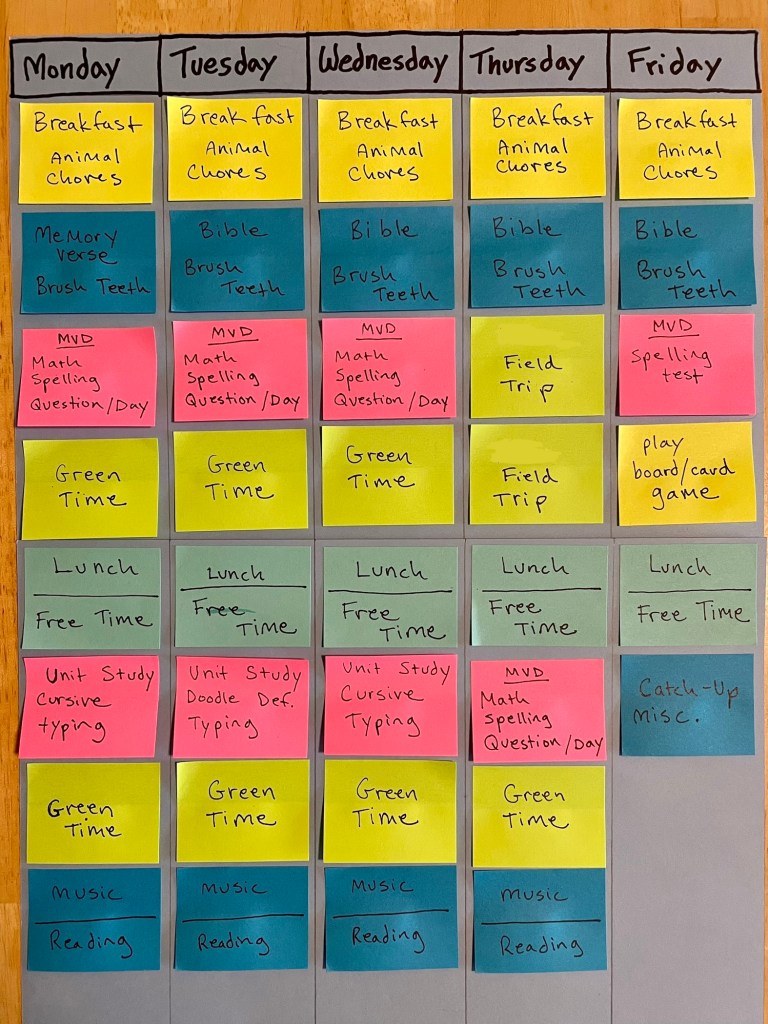 Monday Tuesday Wednesday Thursday Friday
Breakfast
Animal
Chores
Breakfast
Animal
Chores
Breakfast
Animal
Chores
Breakfast
Animal
Chores
Breakfast
Animal
Chores
Memory
Verse
Brush Teeth
Bible
Brush
Teeth
Bible
Brush
Teeth
Bible
Brush
Teeth
Bible
Brush
Teeth
MVD
Math
Spelling
Question/Day
MVD
Math
Spelling
Question/Day
MVD
Math
Spelling
Question/Day
Field
Trip
MVD
Spelling
test
Green
Time
Green
Time
Green
Time
Field
Trip
play
board/card
game
Lunch
Free Time
Lunch
Free
Time
Lunch
Free
Time
Lunch
Free
Time
Lunch
Free Time
Unit Study
Cursive
typing
Unit Study
Doodle Def.
Typing
Unit Study
Cursive
Typing
MVD
Math
Spelling
Question/Day
Catch-Up
misc.
Green
Time
Green
Time
Green
Time
Green
Time
Music
Reading
Music
Reading
Music
Reading
Music
Reading